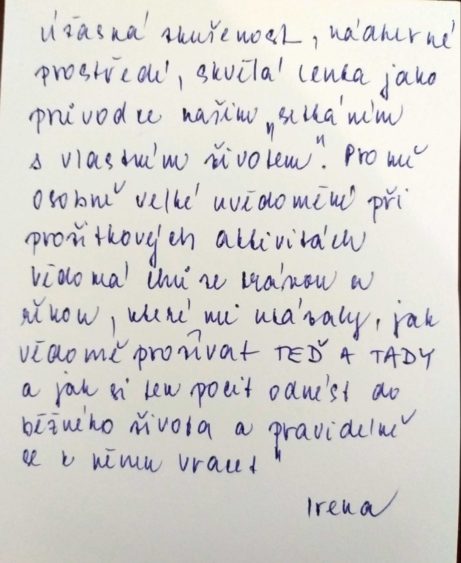 Úžasná zkušenost, nádherné
prostředí, skvělá Lenka jako
průvodce naším „setkáním
s vlastním životem". Pro mě
osobně velké uvědomění při
prožitkových aktivitách
vědomá chůze bránou a
řekou, které mi ukázaly, jak
vědomě prožívat TEĎ A TADY
a jak si ten pocit odnést do
běžného života a pravidelně
se k němu vracet"
Irena